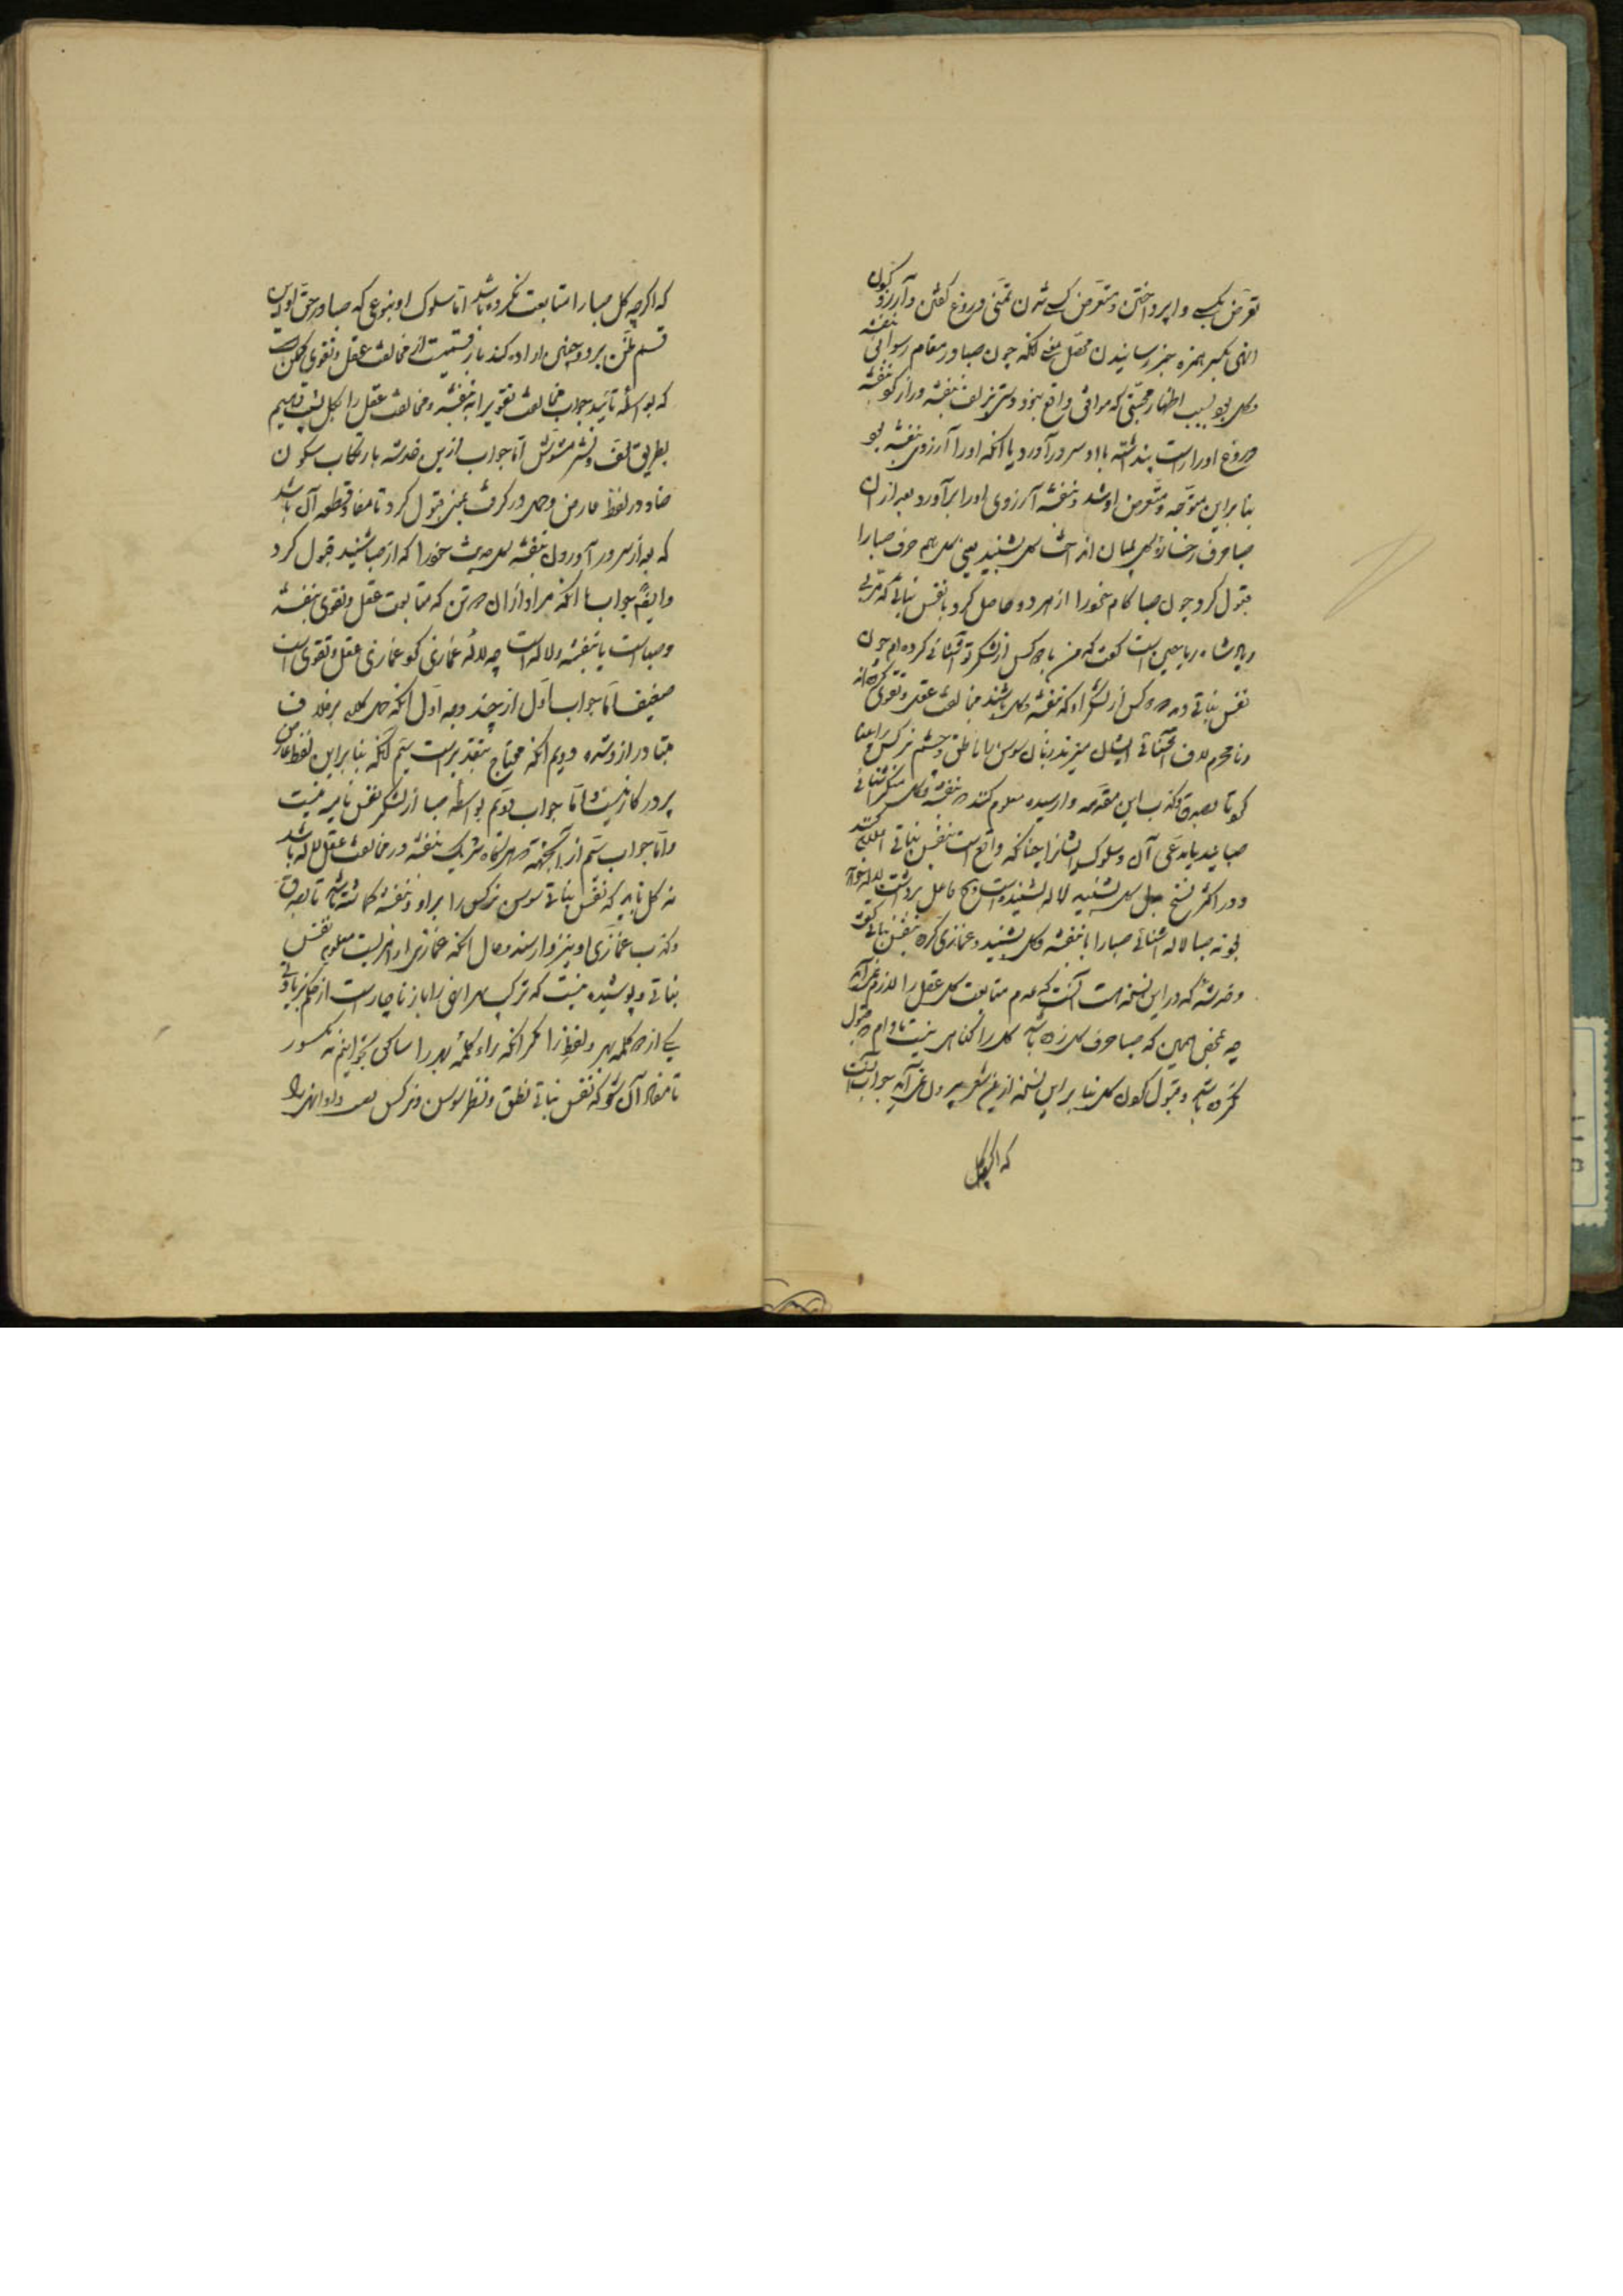 تعرض بکسی وا پرداختن و متعرض کسی شدن تمنی دروغ گفتن و آرزو
انهی بکسر همزه خبر رسانیدن محصل معنی آنکه چون صبا در مقام رسوایی بنفشه
و گل بود بسبب اظهار محبتی که موافق واقع نبود دستی بزلف بنفشه دراز کرد بنفشه
دروغ او را راست پنداشته با او سر درآورد یا آنکه او را آرزوی بنفشه بود
بنا برین متوجه و متعرض او شد و بنفشه آرزوی او را برآورد بعد از آن
صبا حرف رخساره گل بمیان انداخت گل بشنید یعنی گل هم حرف صبا را
قبول کرد چون صبا کام خود را از هر دو حاصل کرد با نفس نباتی که مربی
ریاحین است گفت که من با دو کس از لشکر تو آشنائی کرده ام چون
نفس نباتی دید دو کس از لشکر او که بنفشه و گل باشند مخالفت عقل و تقوی کرده اند
و نامحرم لاف آشنائی ایشان میزند زبان سوسن را ناطق و چشم نرگس را بینا
گو تا بصدق و کذب این مقدمه وارسیده معلوم کنند که بنفشه و گل
صبا شدیا مدعی آن و سلوک ایشانرا چنانکه واقع است بنفس نباتی
و در اکثر نسخ بدل گل بشنید لاله بشنید است
صبا لاله آشنائی صبا را با بنفشه و گل بشنید و غمازی کرده بنفس نباتی گفت
و خدشه که در این نسخه هست آنست که عدم متابعت گل عقل را لازم نمی آید
چه بمحض همین که صبا حرف گل زده باشد گل را گناهی نیست مادام که قبول
نکرده باشد و قبول کردن گل بنا بر این نسخه ازین شعر بیرون نمی آید جواب آنست
که اگرچه گل
که اگرچه گل صبا را متابعت نکرده باشد اما سلوک او بنوعی که صبا در حق او این
قسم ظن برد و چنین اراده کند باز قسمیست از مخالفت عقل و تقوی
که بواسطه تأیید جواب مخالفت تقوی را به بنفشه و مخالفت عقل را بگل نسبت دهیم
بطریق لف و نشر مشوش اما جواب ازین خدشه بارتکاب سکون
ضاد در لفظ عارض و گل در گرفت بمعنی قبول کرد تا مفاد قطعه آن باشد
که بعد از سر در آوردن بنفشه گل حدیث خود را که از صبا شنید قبول کرد
و ایضا جواب با آنکه مراد از آن دو تن که متابعت عقل و تقوی بنفشه
و صباست یا بنفشه و لاله است چه لاله غمازی کرد و غمازی عقل و تقوی است
ضعیف اما جواب اول از چند وجه اول آنکه بر خلاف
متبادر از دو تن دویم آنکه محتاج بتقدیر است سیم آنکه بنا برین لفظ عارض
پر در کار نیست و اما جواب دویم بواسطه صبا از لشکر نفس نامیه نیست
و اما جواب سیم از آنجهة که هرگاه شریک بنفشه در مخالفت عقل لاله باشد
نه گل باید که نفس نباتی سوسن و نرگس را بر او و بنفشه گماشته باشد تا بصدق
و کذب غمازی او نیز وارسند و حال آنکه غمازی او امریست معلوم نفس
نباتی و پوشیده نیست که ترکیب مصراع ثانی را باز ناچار است از حکم بزیادتی
یکی از دو کلمه بهر و لفظ را مگر آنکه راء کلمه بهر را ساکن بخوانیم نه مکسور
تا مفاد آن شود که نفس نباتی نطق و نظر سوسن و نرگس